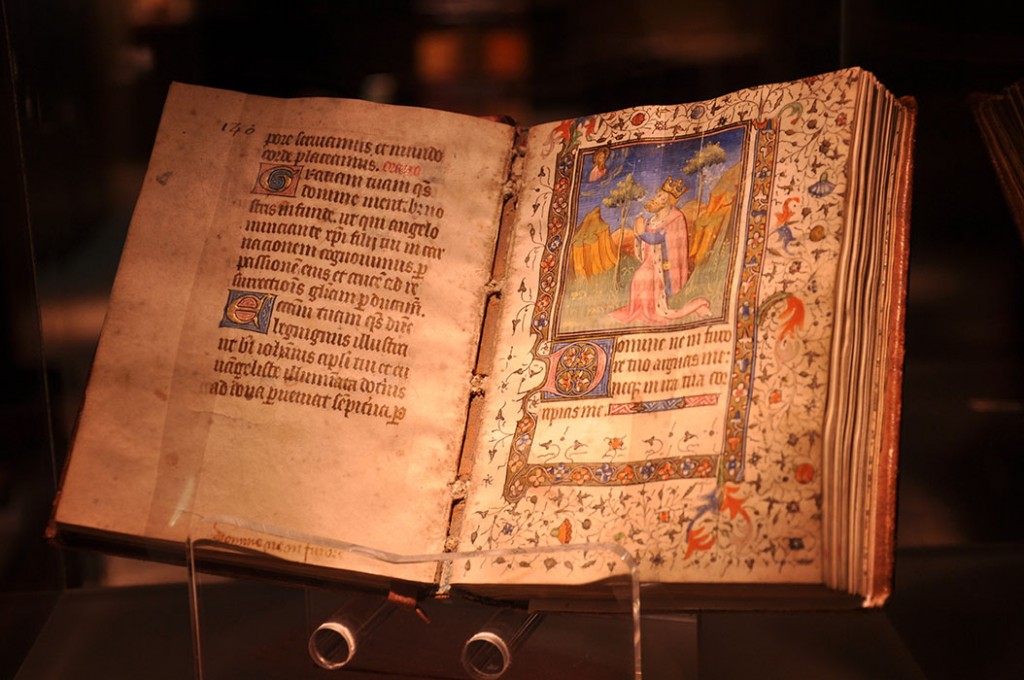 146
pore seruiamus et mundo
corde placeamus.
Graciam tuam qs̄
domine ment. br̄ no
stris infunde. ut qui angelo
nunciante xp̄i filij tui in car
nacionem cognouimus. p
passionē eius et crucē ad re
surrectiōis gl̄iam p ducam̄.
tuam qs̄ dn̄e
benignus illustra
ut bt̄i ioh̄anis apl̄i tui et eu
uāgeliste illuminata
ad dona p̄ueniat sēpit̄na. p
Domine ne in furo
re tuo arguas me:
neqz in ira tua cor
ripias me.
Domine ne in furore